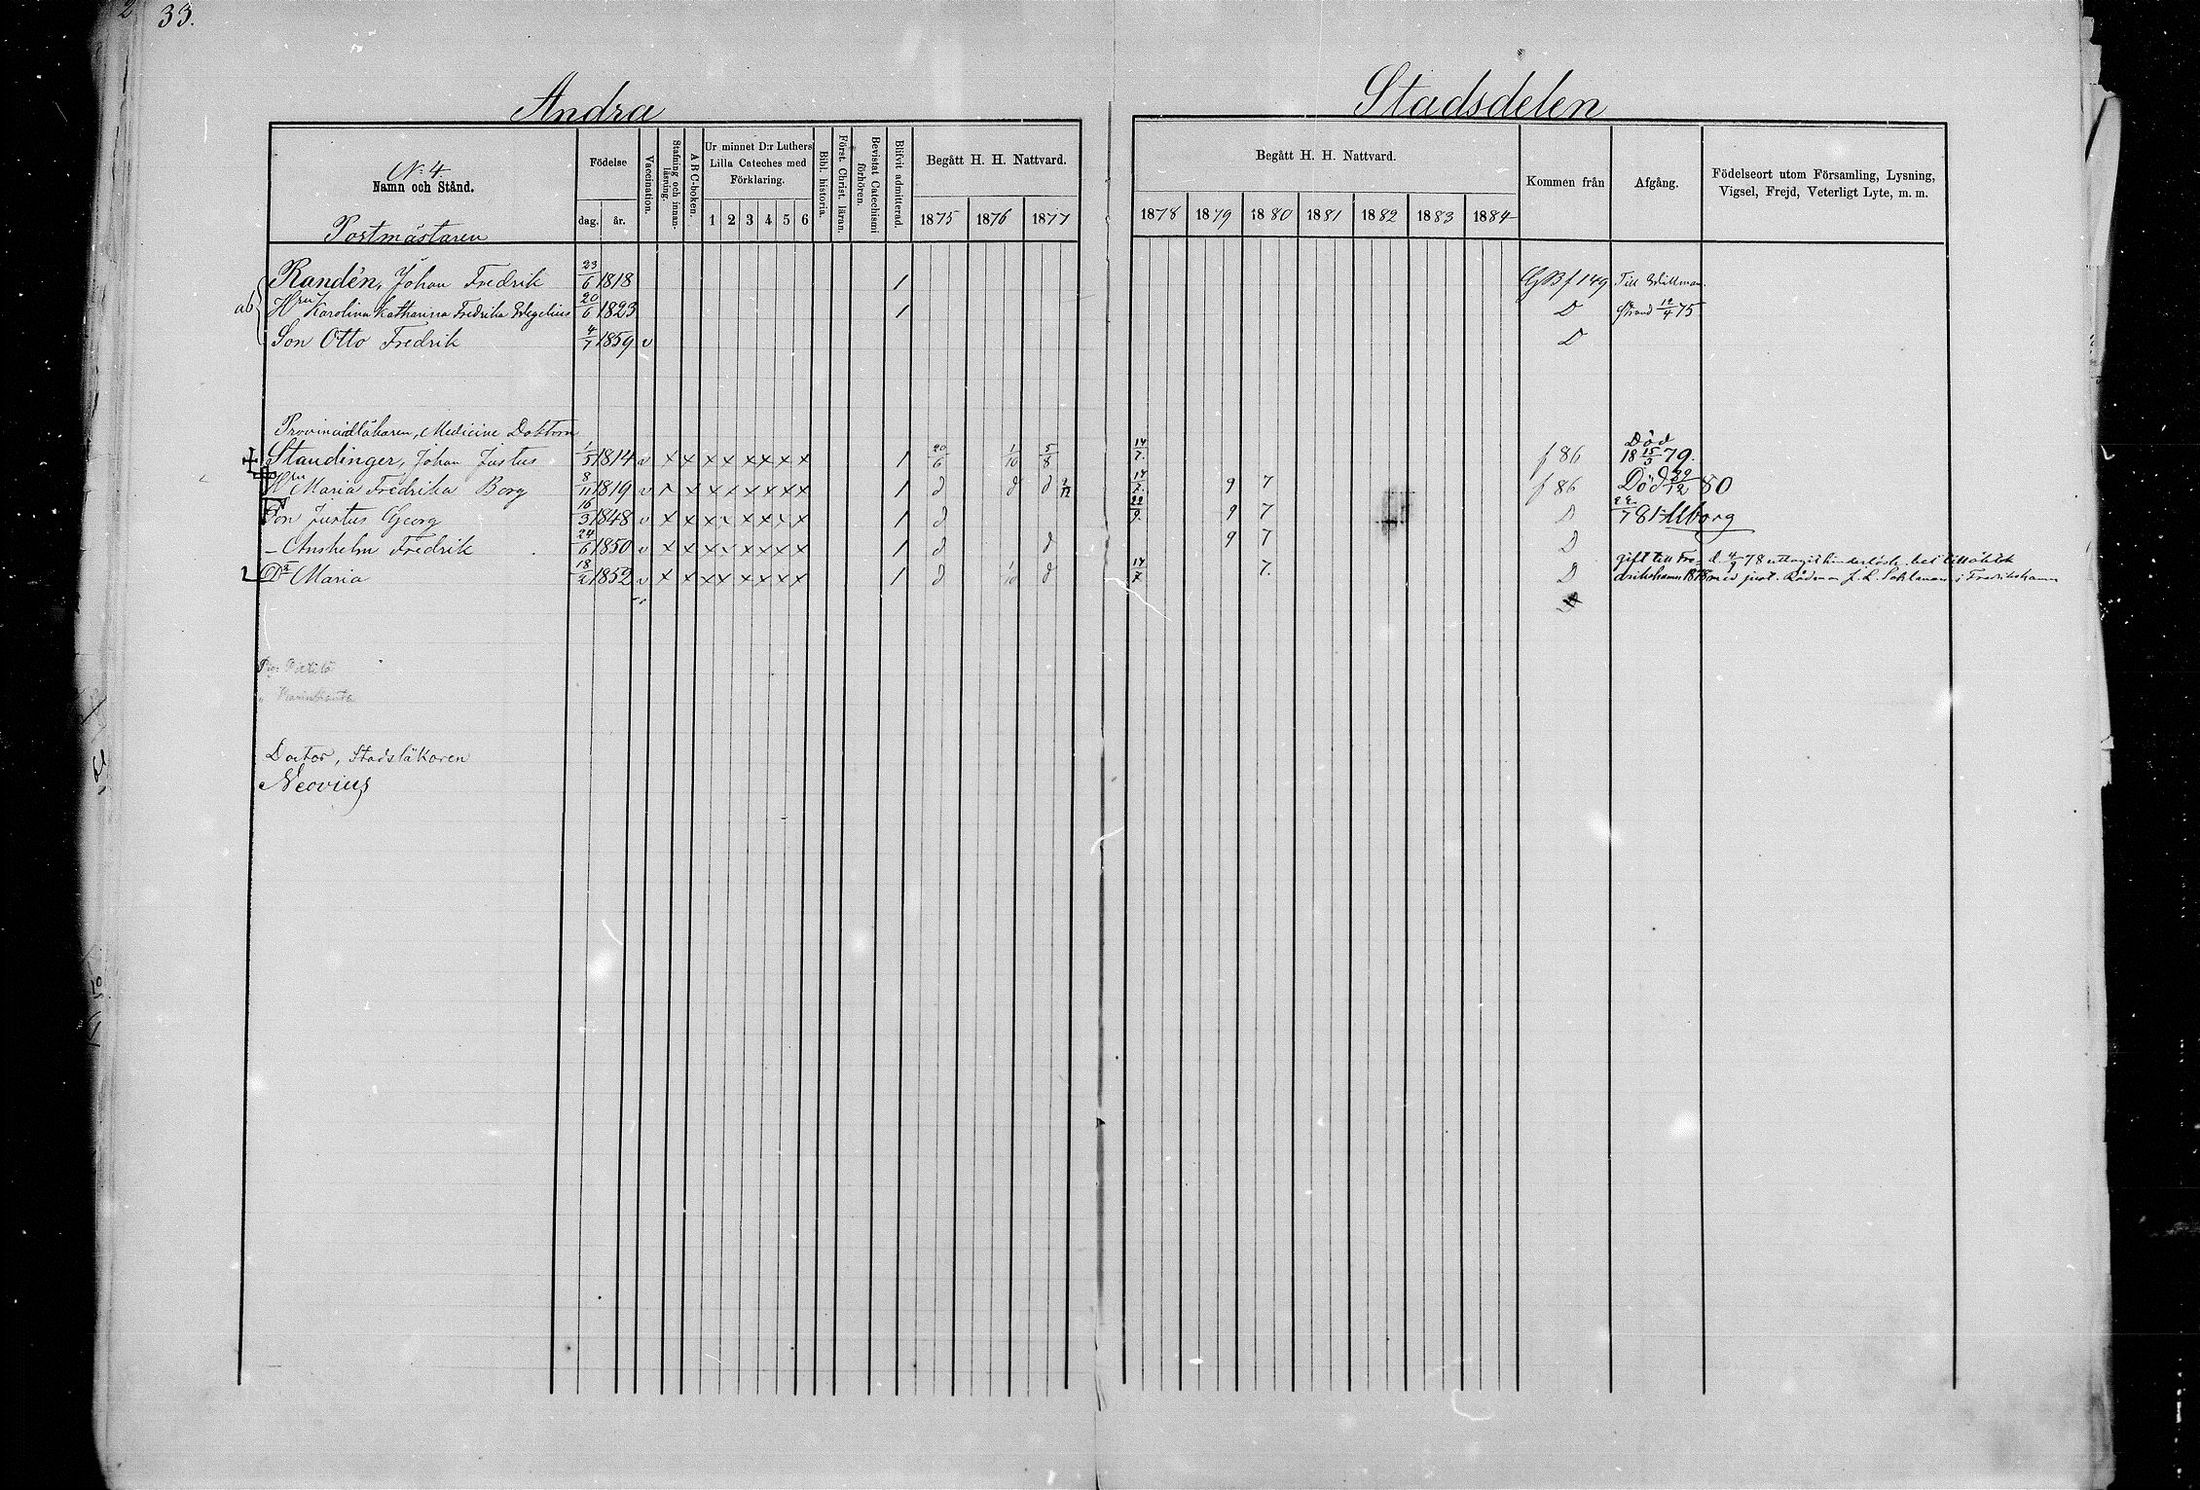 33.
Andra Stadsdelen
N:o 4.
Namn och Stånd.
Födelse
dag. år.
Vaccination.
Stafning och innan-läsning.
ABC-boken.
Ur minnet D:r Luthers
Lilla Cateches med
Förklaring.
1 2 3 4 5 6
Bibl. historia.
Först. Christ. läran.
Bevistat Catechismi förhören.
Blifvit admitterad.
Begått H. H. Nattvard.
1875 1876 1877
Begått H. H. Nattvard.
1878 1879 1880 1881 1882 1883 1884
Kommen från
Afgång.
Födelseort utom Församling, Lysning,
Vigsel, Frejd, Veterligt Lyte, m. m.
Postmästaren
Randén, Johan Fredrik 23/6 1818 1 GB f 149 Till Willman-
ab Hru Karolina Katharina Fredrika Wegelius 20/6 1823 1 D strand 12/4 75
Son Otto Fredrik 4/7 1859 v D
Provincialläkaren, Medicine Doktorn
Staudinger, Johan Justus 1/5 1814 v x x x x x x x x 1 20/6 1/10 5/8 14/7. f 86 Död 18 15/5 79.
Hru Maria Fredrika Borg 8/11 1819 v x x x x x x x x 1 d d d 2/12 14/7. 9 7 f 86 Död 29/12 80
Son Justus Georg 16/3 1848 v x x x x x x x x 1 d 22/9. 9 7 D 22/7 81 Uborg
- Anshelm Fredrik 24/6 1850 v x x x x x x x x 1 d d 9 7 D
Dr Maria 18/2 1852 v x x x x x x x x 1 d 1/10 d 14/7 7. D gift till Fre- d. 4/9 78 uttagit hinderlösh. bet. till äktsk
drikshamn 1878 med just. Rådman J. L. Sohlman i Fredrikshamn
Doctor, Stadsläkaren
Neovius